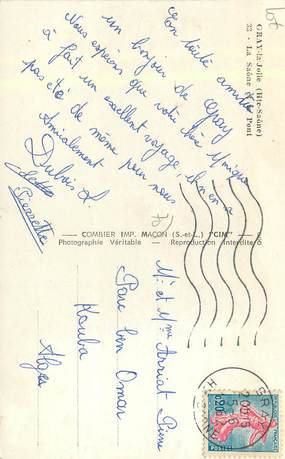 Lot
GRAY-la-Jolie (Hte-Saône)
22 - La Saône et le Pont
En toute amitié
un bonjour de Gray
Nous espérons que votre chère Monique
à fait un excellent voyage, il n'en a
pas été de même pour nous
Amicalement
Dubois
Pierrette
COMBIER IMP. MACON (S.-et-L.) "CIM"
Photographie Véritable - Reproduction Interdite
Mr et Mme Arriat Pierre
Parc ben Omar
Kouba
Alger
GRAY
0,20